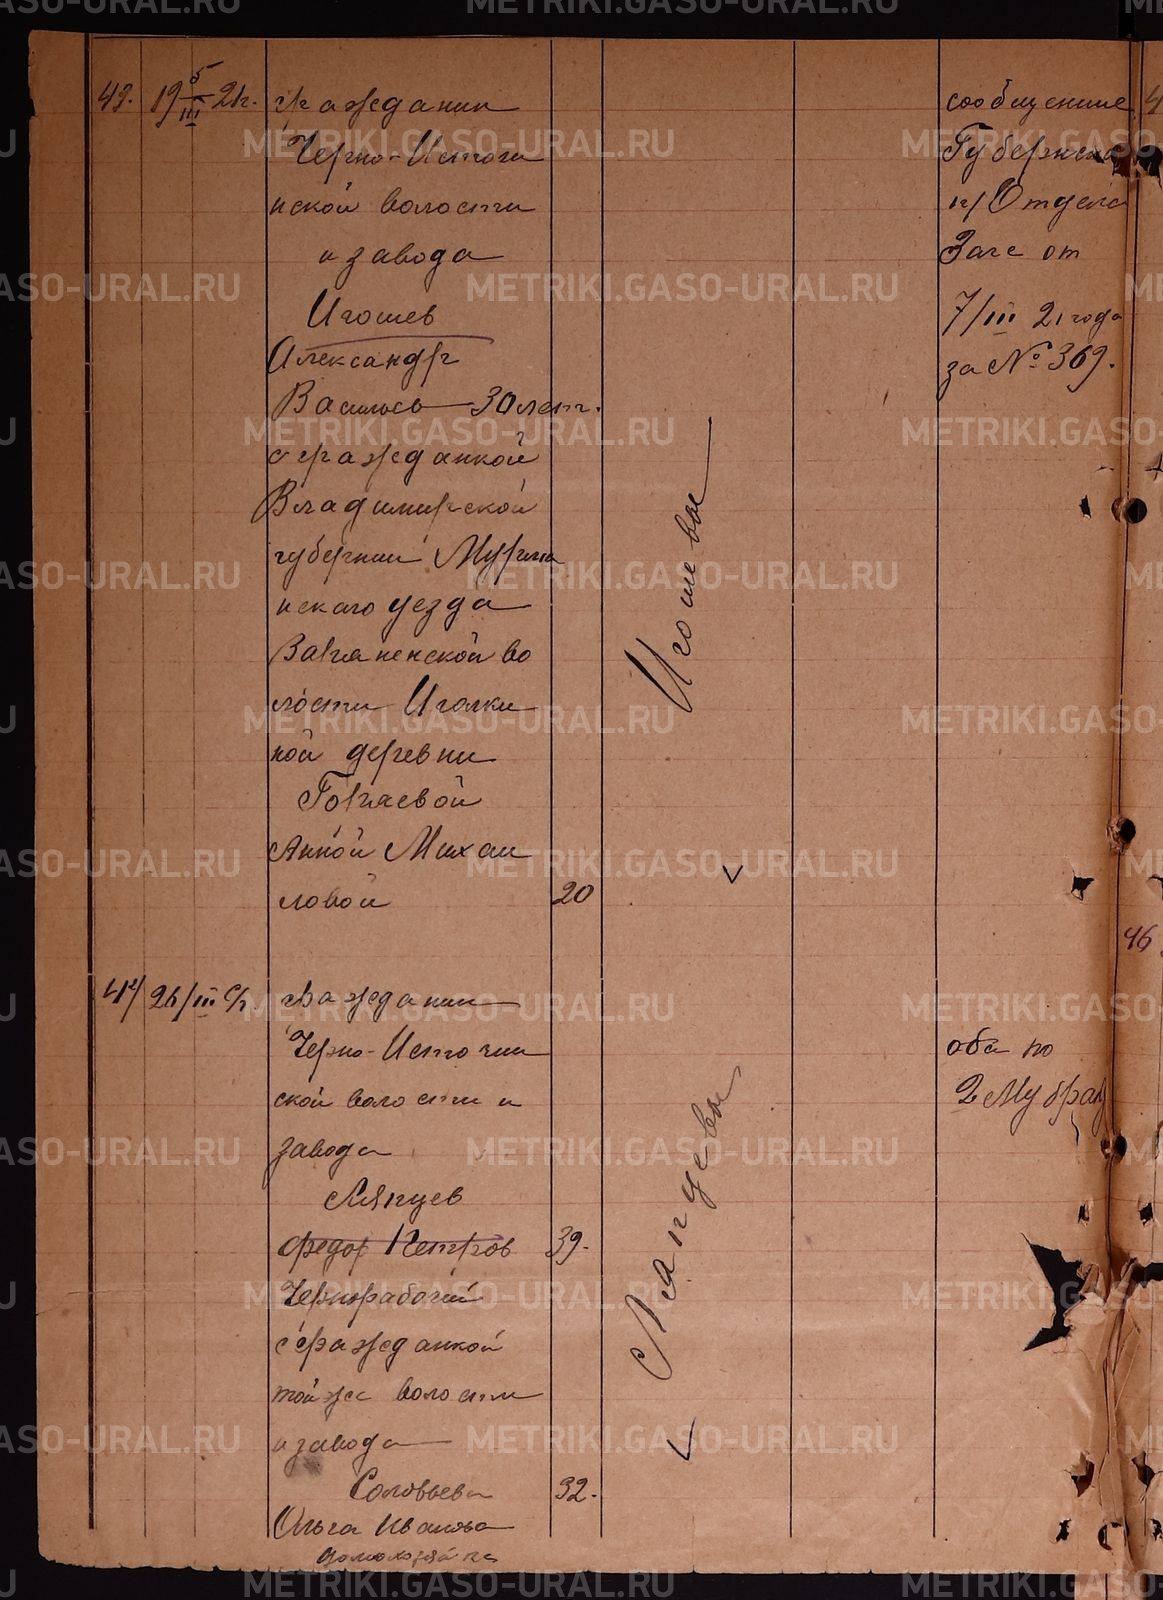 43. 19 5/III 21г. гражданин
Черно-Источи
нской волости
и завода
Игошев
Александр
Васильев 30 лет.
с гражданкой
Владимирской
губернии
нскаго уезда
во
лости
ной деревни
Анной Михаи
ловой 20
Игошевы
сообщение
Губернска
го Отдела
Загс от
7/III 21 года
за № 369.
44 26/III с/г гражданин
Черно-Источин
ской волости и
завода
Ляпцев
Федор Петров 39.
Чернорабочий
с гражданкой
той же волости
и завода
Соловьева 32.
Ольга Иванова
домохозяйка
Ляпцевы
оба по
2му браку
46
METRIKI.GASO-URAL.RU